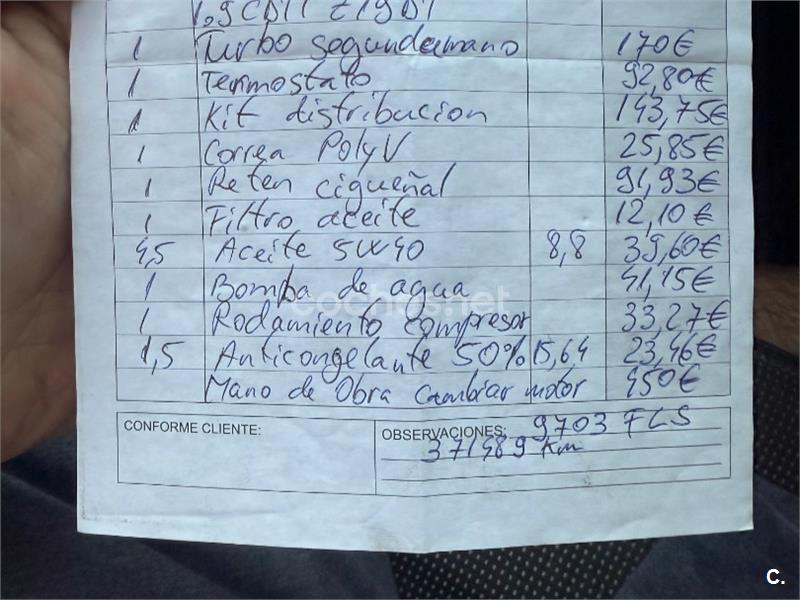 1.9 CDTI Z19DT
1 Turbo segundamano 170€
1 Termostato 92,80€
1 Kit distribucion 143,75€
1 Correa PolyV 25,85€
1 Reten cigueñal 91,93€
1 Filtro aceite 12,10€
4,5 Aceite 5W40 8,8 39,60€
1 Bomba de agua 41,15€
coches.net
1 Rodamiento compresor 33,27€
1,5 Anticongelante 50% 15,64 23,46€
Mano de Obra cambiar motor 450€
CONFORME CLIENTE:
OBSERVACIONES: 9703 FLS
371489 Km
C.